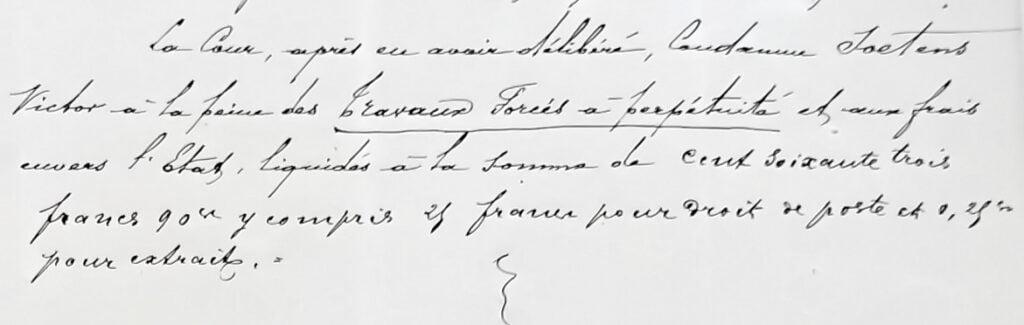 La Cour, après en avoir délibéré, Condamne Soetens
Victor à la peine des Travaux Forcés à perpétuité et aux frais
envers l'Etat, liquidés à la somme de cent soixante trois
francs 90 cn y compris 25 francs pour droit de poste et 0,25 cn
pour extrait. =